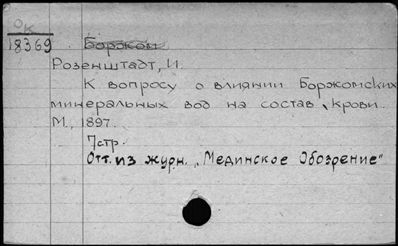 ОК
18369
Боржом
Розенштадт, И.
К вопросу о влиянии Боржомских
минеральных вод на состав крови.
М., 1897.
7стр.
Отт. из журн. „Мединское Обозрение"